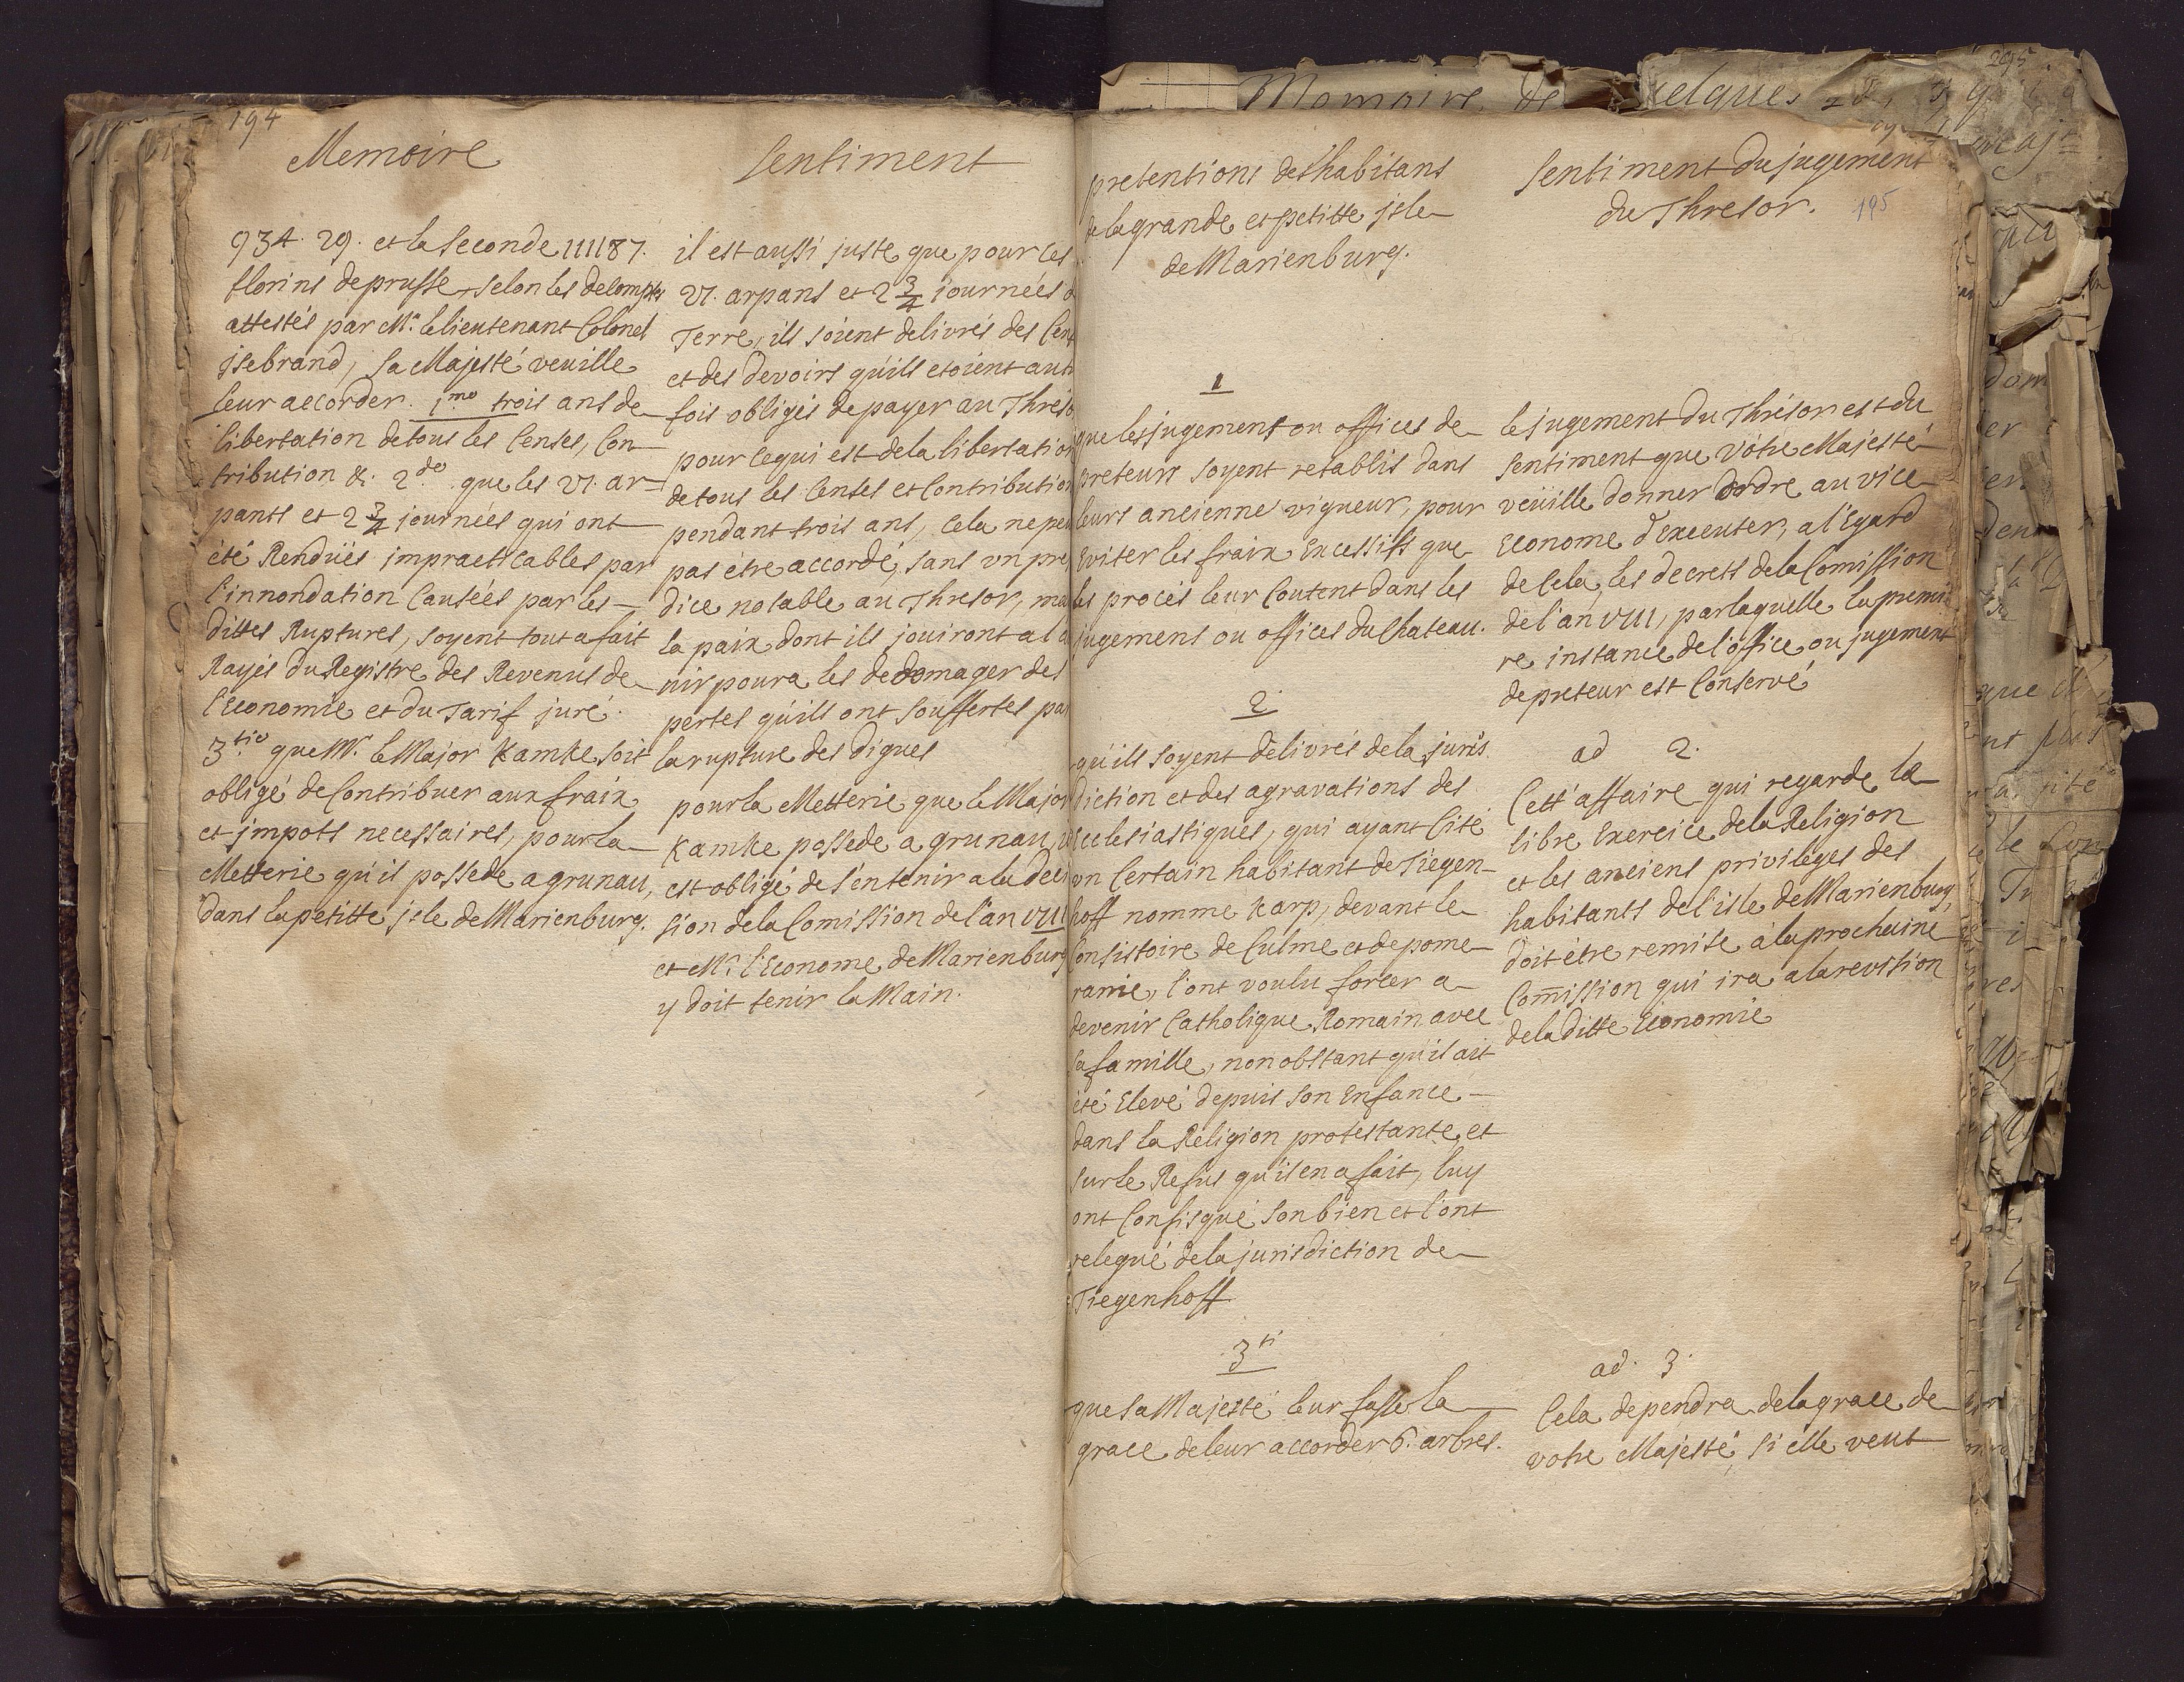 194
Memoire
934. 29. et la seconde 111187.
florins de prusse, selon les decomptes
attestés par Mr. le lieutenant Colonel
jsebrand, sa Majesté veuille
leur accorder. 1.mo trois ans de
libertation de tous les Censes, Con-
tribution &. 2do. que les VI. ar-
pants et 2 3/4 journées qui ont
été Renduës impracticables par
l'innondation Causéés par les
dittes Ruptures, soyent tout a fait
Rayés du Registre des Revenus de
l'Economie et du Tarif juré.
3tio que Mr. le Major Kamke soit
obligé de Contribuer aux fraix
et jmpots necessaires, pour la
Metterie qu'il possede a grunau,
dans la petitte jsle de Marienburg.
Sentiment
il est aussi juste que pour les
VI. arpans et 2 3/4 journéés
Terre, ils soient delivrés des
et des devoirs qu'ils etoient
fois obligés de payer au
pour ce qui est de la libertation
de tous les Censes et Contribution
pendant trois ans, Cela ne
pas étre accordé, sans un
dice notable au Thresor,
la paix dont ils jouiront
nir poura les dedomager des
pertes qu'ils ont souffertes
la rupture des digues
pour la Metterie que le Major
Kamke possede a grunau,
est obligé de s'en tenir a la
sion de la Comission de l'an VIII
et Mr. l'Econome de Marienburg
y doit tenir la Main.
Memoire de quelques
295
pretentions des habitans
de la grande et petitte jsle
de Marienburg.
1
que les jugements ou offices de
preteurs soyent retablis dans
leurs ancienne vigueur, pour
Eviter les fraix Excessifs que
les procés leur Coutent dans les
jugemens ou offices du Chateau.
2
qu'ils soyent delivrés de la juris
diction et des agravations des
Ecclesiastiques, qui ayant Cité
un Certain habitant de Tiegen-
hoff nomme Karp, devant le
Consistoire de Culme et de pome
ranie, l'ont voulu forcer a
devenir Catholique Romain avec
sa famille, non obstant qu'il ait
été Elevé depuis son Enfance
dans la Religion protestante, et
sur le Refus qu'il en a fait, luy
ont Confisqué son bien et l'ont
relegué de la jurisdiction de
Tiegenhoff
3ti
que sa Majesté leur fasse la
grace de leur accorder 6. arbres.
Sentiment du jugement
du Thresor.
195
le jugement du Thrésor est du
sentiment que Vôtre Majesté
veüille donner ordre au vice
Econome d'executer, a l'Egard
de Cela, les decrets de la Comission
de l'an VIII, par laquelle la premie
re instance de l'office ou jugement
de preteur est Conservé
ad 2.
Cett' affaire qui regarde le
libre Exercice de la Religion
et les anciens privileges des
habitants de l'isle de Marienburg,
doit étre remise a la prochaine
Comission qui ira a la revision
de la ditte Economie
ad. 3.
Cela dependra de la grace de
votre Majesté, si elle veut